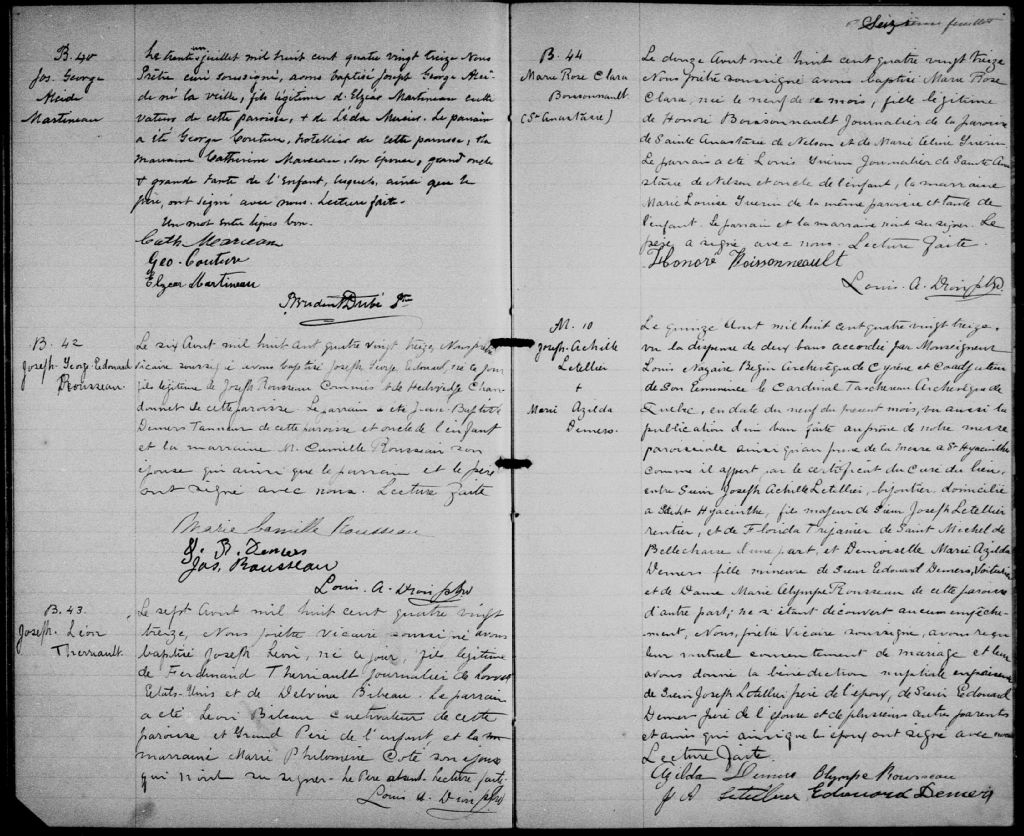 B. 40
Jos. George
Alcide
Martineau
Le trente un juillet mil huit cent quatre vingt treize Nous
Prêtre curé soussigné, avons baptisé Joseph George Alci-
de né la veille, fils légitime d'Elzéar Martineau culti
vateur de cette paroisse, + de Léda Mercier. Le parrain
a été George Couture, hotellier de cette paroisse, la
marraine Catherine Marceau, son épouse, grand oncle
+ grande tante de l'Enfant, lesquels, ainsi que le
père, ont signé avec nous. Lecture faite.
Un mot entre lignes bon.
Cath. Marceau
Geo. Couture
Elzear Martineau
Prudent Dubé Ptre
B. 42
Joseph George Edouard
Rousseau
Le six Aout mil huit cent quatre vingt treize, Nous prêtre
vicaire soussigné avons baptisé Joseph George Edouard, né ce jour
fils légitime de Joseph Rousseau Commis et de Hedwidge Char
donnet de cette paroisse. Le parrain a été Jean-Baptiste
Demers Tanneur de cette paroisse et oncle de l'enfant
et la marraine M. Camille Rousseau son
épouse qui ainsi que le parrain et le père
ont signé avec nous. Lecture faite
Marie Camille Rousseau
J. B. Demers
Jos. Rousseau
Louis. A. Dion ptre
B. 43.
Joseph. Léon
Therriault.
Le sept Aout mil huit cent quatre vingt
treize, Nous prêtre vicaire soussigné avons
baptisé Joseph Léon, né ce jour, fils légitime
de Ferdinand Therriault Journalier de
Etats-Unis et de Delvina Bibeau. Le parrain
a été Léon Bibeau cultivateur de cette
paroisse et Grand Père de l'enfant et la
marraine Marie Philomène Coté son épouse
qui n'ont su signer. Le Père absent. Lecture faite.
Louis A. Dion ptre
Seizième feuillet
B. 44
Marie Rose Clara
Boissonnault
(Ste Anastasie)
Le douze Aout mil huit cent quatre vingt treize
Nous prêtre soussigné avons baptisé Marie Rose
Clara, née le neuf de ce mois, fille légitime
de Honoré Boissonnault Journalier de la paroisse
de Sainte Anastasie de Nelson et de Marie Celina Guérin
Le parrain a été Louis Guérin Journalier de Sainte Ana
stasie de Nelson et oncle de l'enfant, la marraine
Marie Louise Guerin de la même paroisse et tante de
l'enfant. Le parrain et la marraine n'ont su signer. Le
père a signé avec nous. Lecture faite.
Honoré Boissonneault
Louis. A. Dion ptre.
M. 10
Joseph-Achille
Letellier
+
Marie Azilda
Demers.
Le quinze Aout mil huit cent quatre vingt treize,
vu la dispense de deux bans accordée par Monseigneur
Louis Nazaire Begin Archevêque de Cyrène et Coadjuteur
de Son Eminence le Cardinal Taschereau Archevêque de
Québec, en date du neuf du présent mois, vu aussi la
publication d'un ban faite au prône de notre messe
paroissiale ainsi qu'au prône de la messe à St Hyacinthe
comme il appert par le certificat du Curé du lieu,
entre Sieur Joseph Achille Letellier, bijoutier, domicilié
à Saint Hyacinthe, fils majeur de Sieur Joseph Letellier
rentier, et de Florida Trépanier de Saint Michel de
Bellechasse d'une part, et Demoiselle Marie Azilda
Demers fille mineure de Sieur Edouard Demers, Voiturier
et de Dame Marie Olympe Rousseau de cette paroisse
d'autre part; ne s'étant découvert aucun empêche-
ment, Nous, prêtre Vicaire soussigné, avons reçu
leur mutuel consentement de mariage et leur
avons donné la bénédiction nuptiale en présence
de Sieur Joseph Letellier père de l'époux, de Sieur Edouard
Demers père de l'épouse et de plusieurs autres parents
et amis qui ainsi que l'époux ont signé avec nous
Lecture faite.
Azilda Demers Olympe Rousseau
J A Letellier Edouard Demers